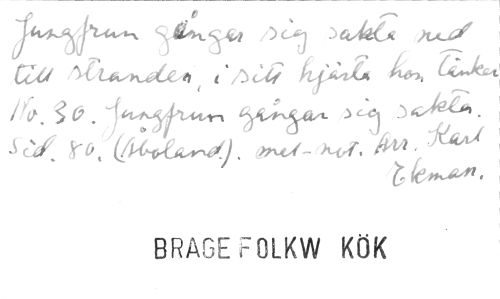 Jungfrun gångar sig sakta ned
till stranden, i sitt hjärta hon tänker
No. 30. Jungfrun gångar sig sakta.
Sid. 80. (Åboland). met-not. Arr. Karl
Ekman.
BRAGE FOLKW KÖK